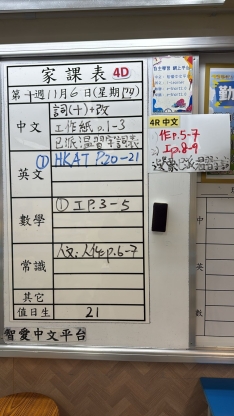 家課表 4D
第十週11月6日(星期四)
中文
詞(十)+改
工作紙 p.1-3
已派溫習字詞表
英文
① HKAT P.20-21
數學
① IP.3-5
常識
人文:人作p.6-7
其它
值日生
21
智愛中文平台
4R 中文
作p.5-7
Ip.8-9
勤
中
英
數